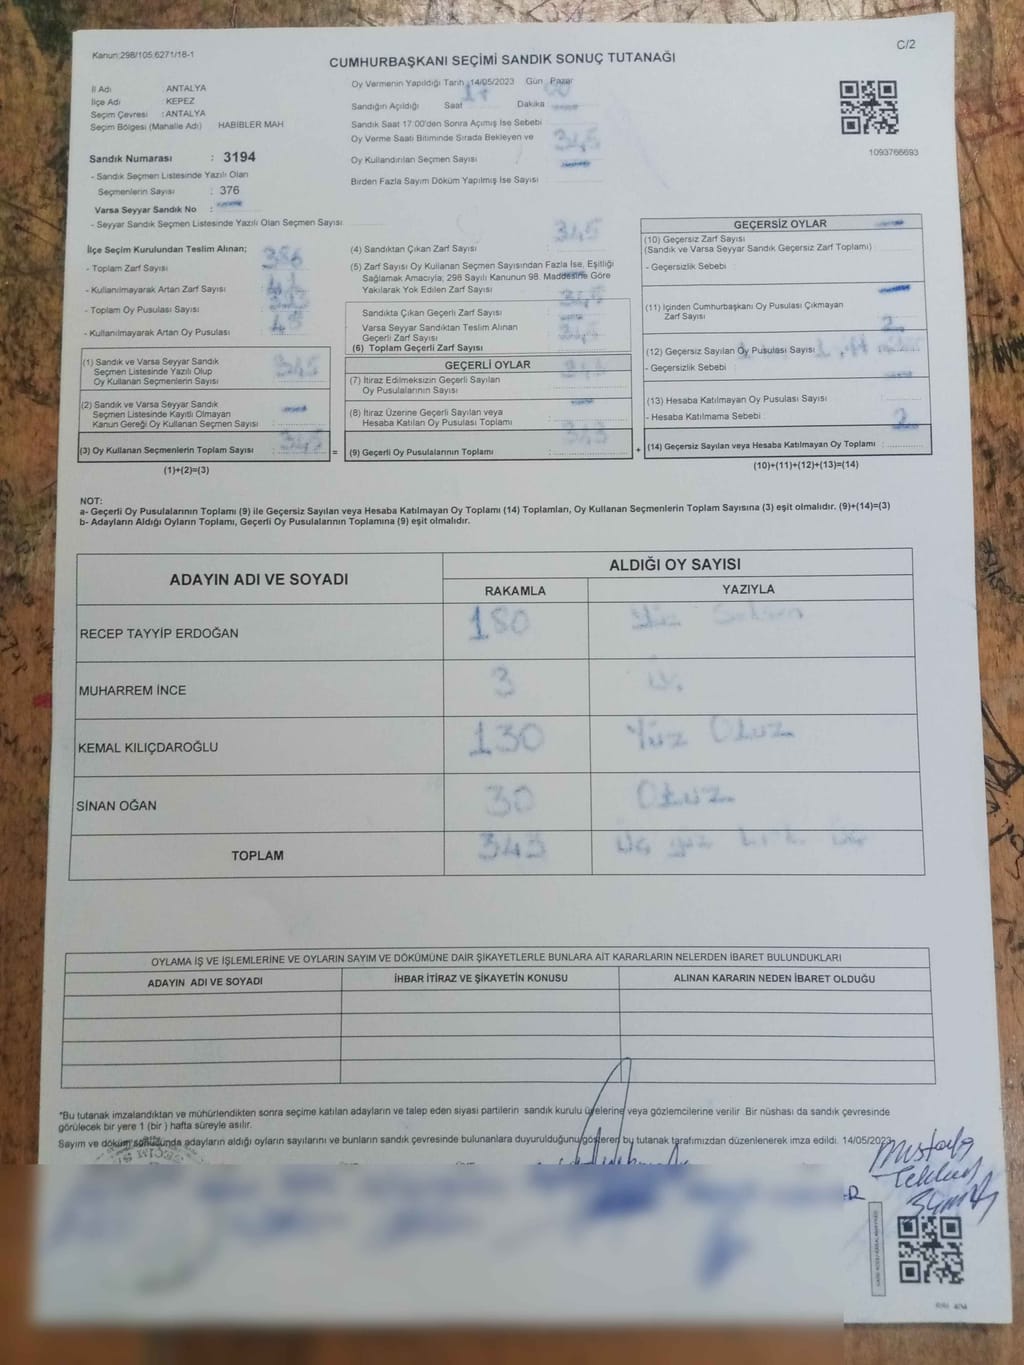 Kanun:298/105,6271/18-1
C/2
CUMHURBAŞKANI SEÇİMİ SANDIK SONUÇ TUTANAĞI
İl Adı : ANTALYA
İlçe Adı : KEPEZ
Seçim Çevresi : ANTALYA
Seçim Bölgesi (Mahalle Adı) HABİBLER MAH
Sandık Numarası : 3194
- Sandık Seçmen Listesinde Yazılı Olan
Seçmenlerin Sayısı : 376
Varsa Seyyar Sandık No :
- Seyyar Sandık Seçmen Listesinde Yazılı Olan Seçmen Sayısı:
Oy Vermenin Yapıldığı Tarih :14/05/2023 Gün : Pazar
Sandığın Açıldığı Saat 17 Dakika 00
Sandık Saat 17:00'den Sonra Açımış İse Sebebi
Oy Verme Saati Bitiminde Sırada Bekleyen ve
Oy Kullandırılan Seçmen Sayısı 345
Birden Fazla Sayım Döküm Yapılmış İse Sayısı
1093766693
İlçe Seçim Kurulundan Teslim Alınan;
- Toplam Zarf Sayısı : 386
- Kullanılmayarak Artan Zarf Sayısı : 41
- Toplam Oy Pusulası Sayısı :
- Kullanılmayarak Artan Oy Pusulası : 45
(1) Sandık ve Varsa Seyyar Sandık
Seçmen Listesinde Yazılı Olup
Oy Kullanan Seçmenlerin Sayısı : 345
(2) Sandık ve Varsa Seyyar Sandık
Seçmen Listesinde Kayıtlı Olmayan
Kanun Gereği Oy Kullanan Seçmen Sayısı :
(3) Oy Kullanan Seçmenlerin Toplam Sayısı : 345
(1)+(2)=(3)
(4) Sandıktan Çıkan Zarf Sayısı : 345
(5) Zarf Sayısı Oy Kullanan Seçmen Sayısından Fazla İse, Eşitliği
Sağlamak Amacıyla; 298 Sayılı Kanunun 98. Maddesine Göre
Yakılarak Yok Edilen Zarf Sayısı
Sandıkta Çıkan Geçerli Zarf Sayısı : 345
Varsa Seyyar Sandıktan Teslim Alınan
Geçerli Zarf Sayısı
(6) Toplam Geçerli Zarf Sayısı : 345
GEÇERLİ OYLAR
(7) İtiraz Edilmeksizin Geçerli Sayılan
Oy Pusulalarının Sayısı : 343
(8) İtiraz Üzerine Geçerli Sayılan veya
Hesaba Katılan Oy Pusulası Toplamı
(9) Geçerli Oy Pusulalarının Toplamı : 343
GEÇERSİZ OYLAR
(10) Geçersiz Zarf Sayısı
(Sandık ve Varsa Seyyar Sandık Geçersiz Zarf Toplamı)
- Geçersizlik Sebebi :
(11) İçinden Cumhurbaşkanı Oy Pusulası Çıkmayan
Zarf Sayısı
(12) Geçersiz Sayılan Oy Pusulası Sayısı : 2
- Geçersizlik Sebebi :
(13) Hesaba Katılmayan Oy Pusulası Sayısı
- Hesaba Katılmama Sebebi :
(14) Geçersiz Sayılan veya Hesaba Katılmayan Oy Toplamı : 2
(10)+(11)+(12)+(13)=(14)
NOT:
a- Geçerli Oy Pusulalarının Toplamı (9) ile Geçersiz Sayılan veya Hesaba Katılmayan Oy Toplamı (14) Toplamları, Oy Kullanan Seçmenlerin Toplam Sayısına (3) eşit olmalıdır. (9)+(14)=(3)
b- Adayların Aldığı Oyların Toplamı, Geçerli Oy Pusulalarının Toplamına (9) eşit olmalıdır.
ADAYIN ADI VE SOYADI ALDIĞI OY SAYISI
RAKAMLA YAZIYLA
RECEP TAYYİP ERDOĞAN 180 Yüz Seksen
MUHARREM İNCE 3 Üç
KEMAL KILIÇDAROĞLU 130 Yüz Otuz
SİNAN OĞAN 30 Otuz
TOPLAM 343 Üç yüz kırk üç
OYLAMA İŞ VE İŞLEMLERİNE VE OYLARIN SAYIM VE DÖKÜMÜNE DAİR ŞİKAYETLERLE BUNLARA AİT KARARLARIN NELERDEN İBARET BULUNDUKLARI
ADAYIN ADI VE SOYADI İHBAR İTİRAZ VE ŞİKAYETİN KONUSU ALINAN KARARIN NEDEN İBARET OLDUĞU
*Bu tutanak imzalandıktan ve mühürlendikten sonra seçime katılan adayların ve talep eden siyasi partilerin sandık kurulu üyelerine veya gözlemcilerine verilir. Bir nüshası da sandık çevresinde
görülecek bir yere 1 (bir) hafta süreyle asılır.
Sayım ve döküm sonucunda adayların aldığı oyların sayılarını ve bunların sandık çevresinde bulunanlara duyurulduğunu gösteren bu tutanak tarafımızdan düzenlenerek imza edildi. 14/05/2023
Mustafa